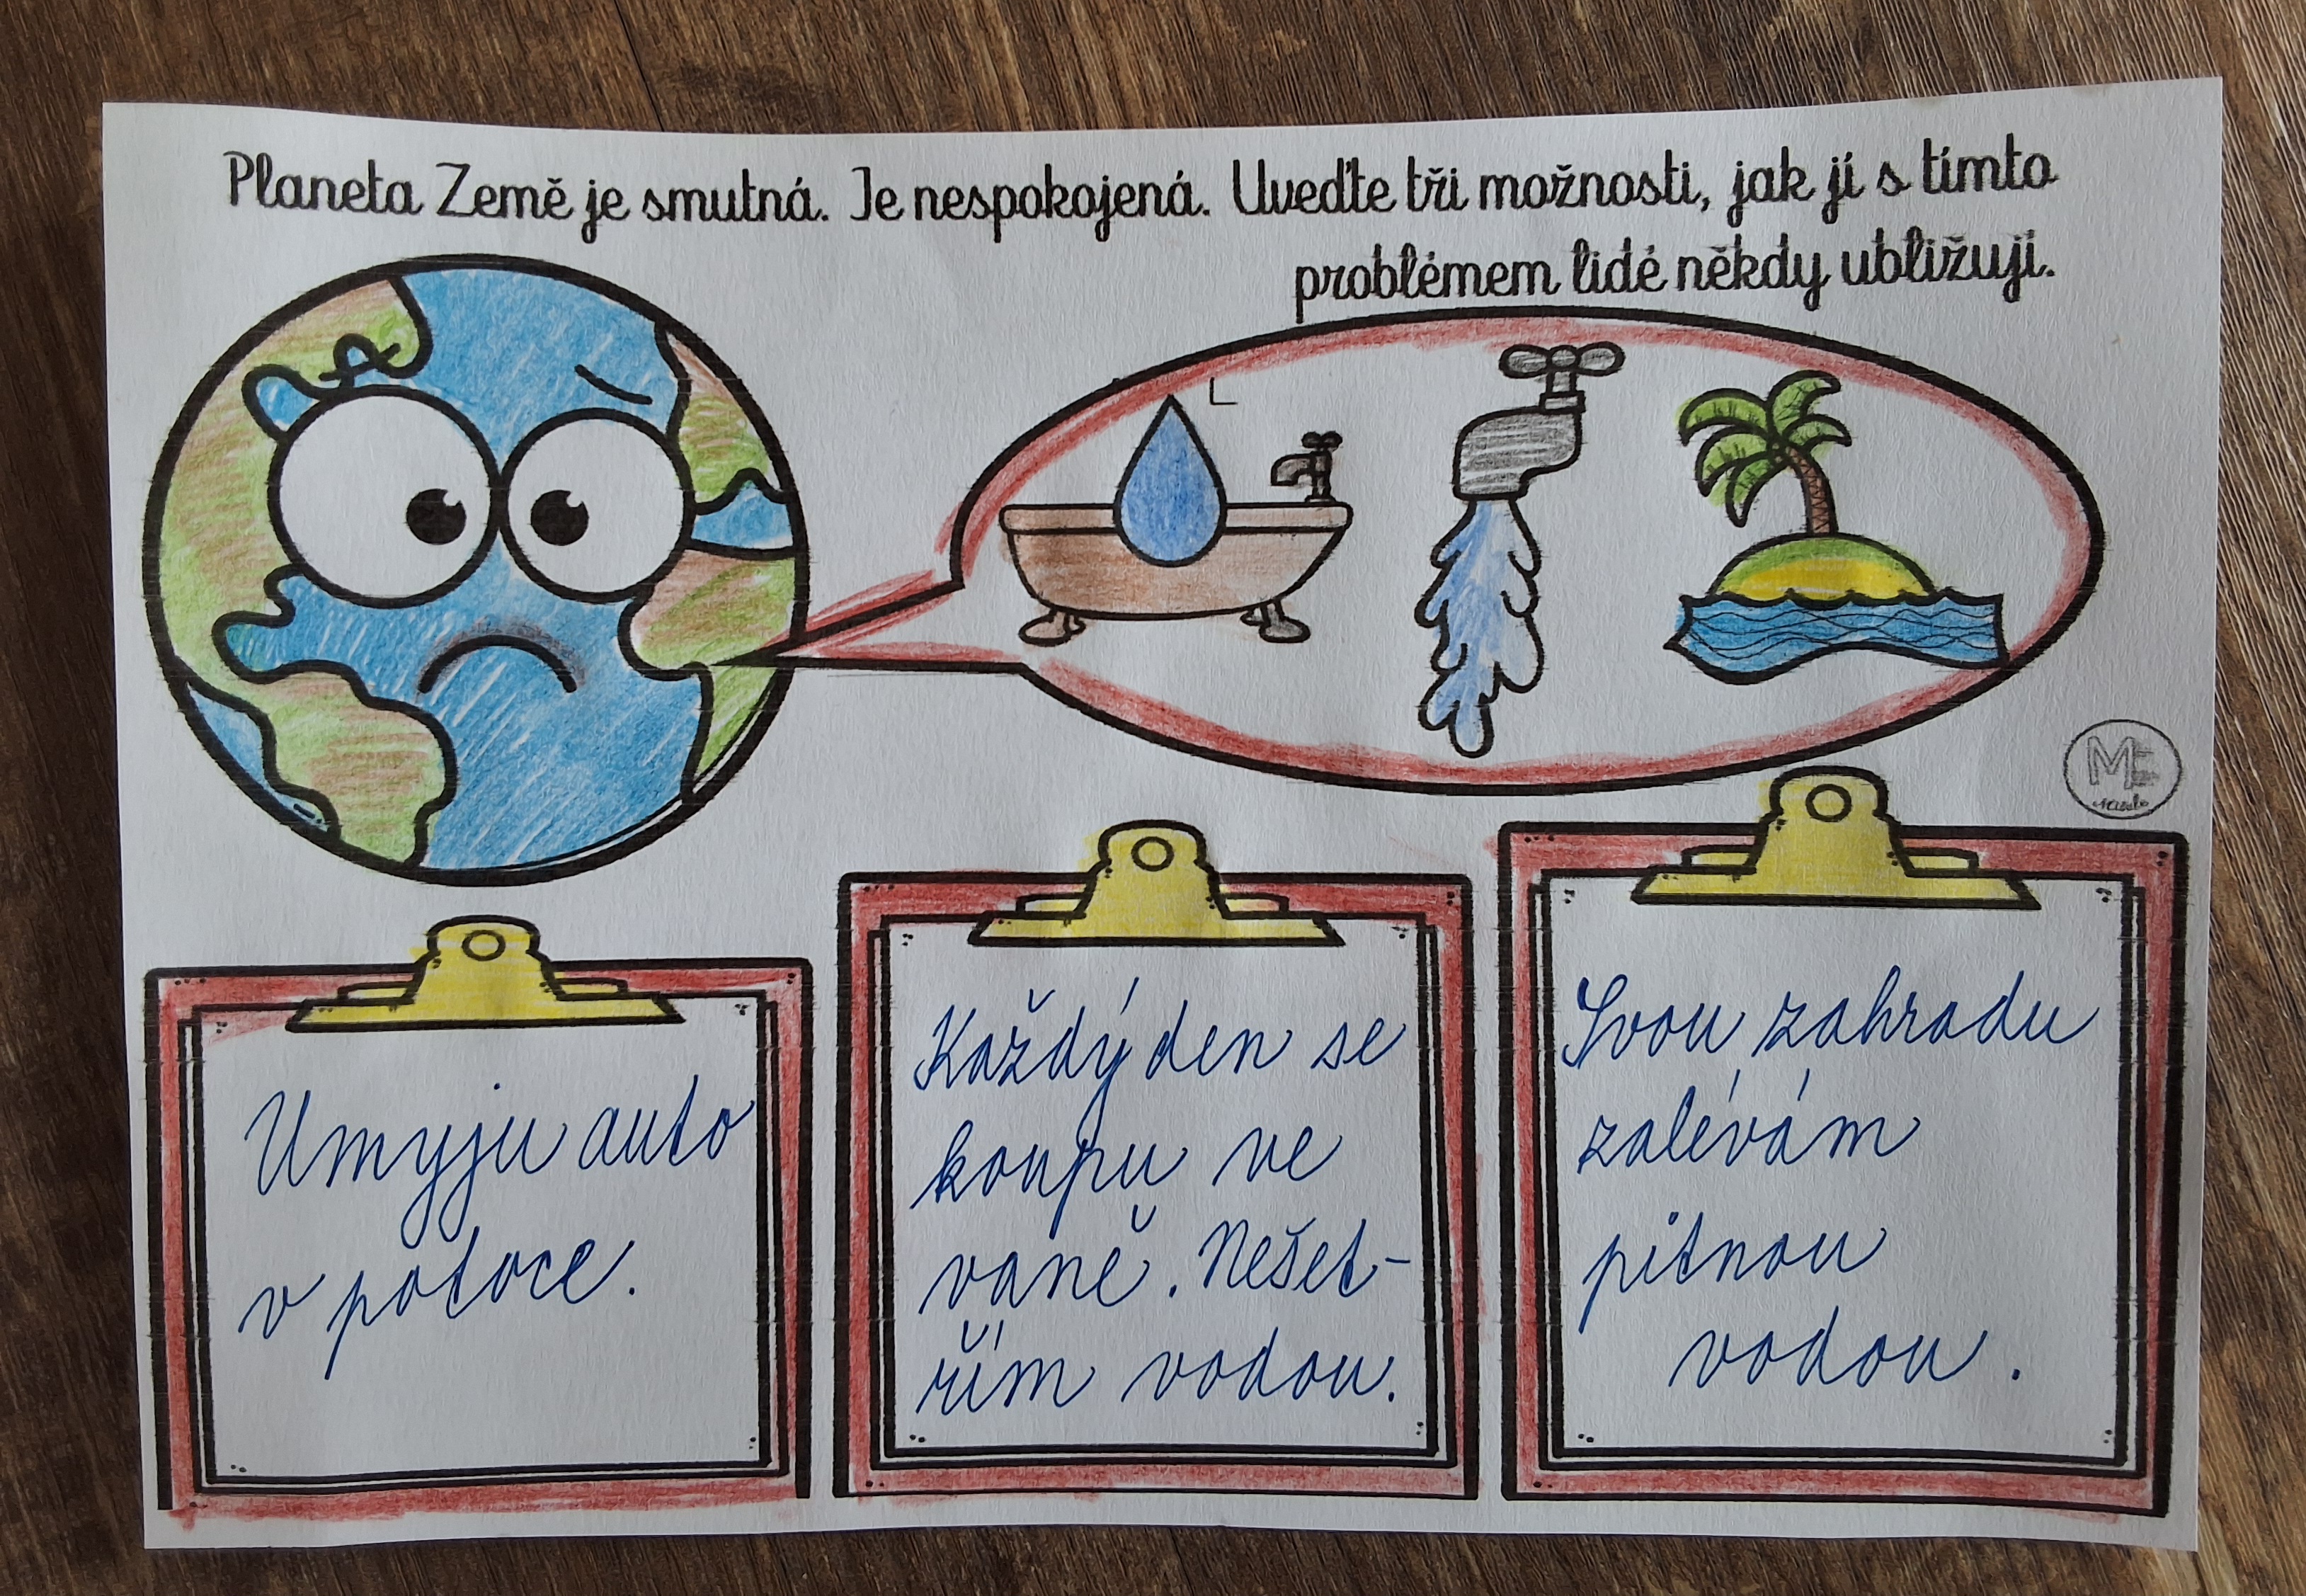 Planeta Země je smutná. Je nespokojená. Uveďte tři možnosti, jak jí s tímto
problémem lidé někdy ubližují.
Umyju auto
v potoce.
Každý den se
koupu ve
vaně. Nešet-
řím vodou.
Svou zahradu
zalévám
pitnou
vodou.
ME